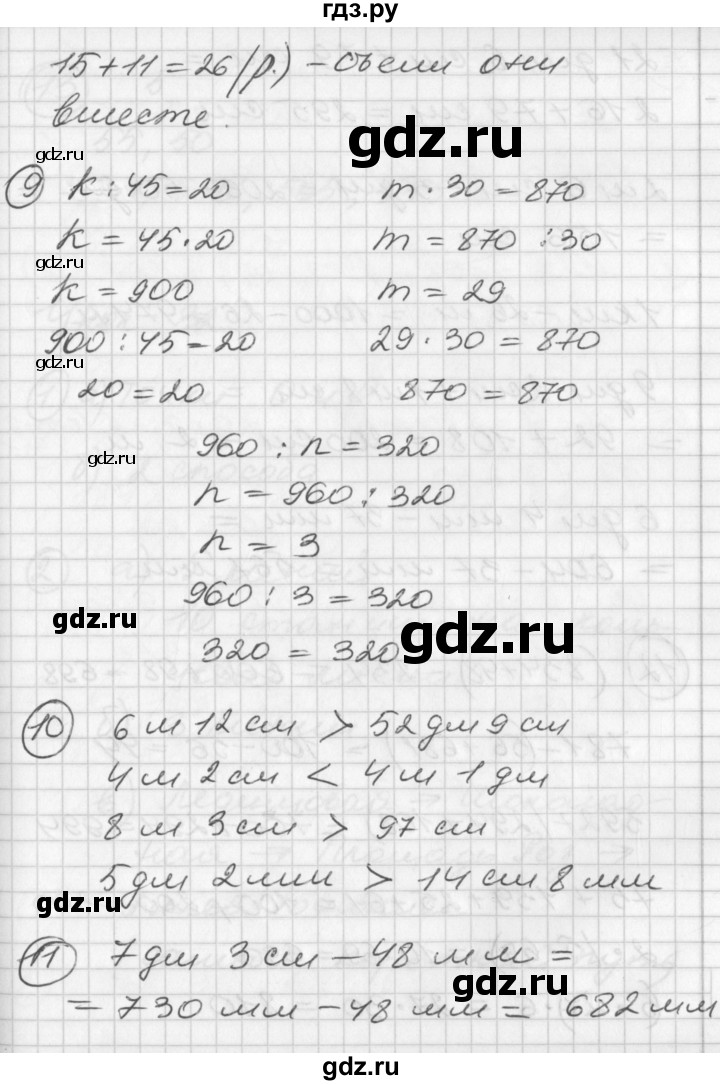 гдз.ру
15+11=26(р.) – съели они
вместе.
gdz.ru
gdz.ru
9 k : 45 = 20 m · 30 = 870
k = 45 · 20 m = 870 : 30
gdz.ru
k = 900 m = 29
900 : 45 = 20 29 · 30 = 870
gdz.ru
20 = 20 870 = 870
960 : n = 320
gdz.ru
n = 960 : 320
n = 3
960 : 3 = 320
gdz.ru
gdz.ru
320 = 320
10 6 м 12 см > 52 дм 9 см
4 м 2 см < 4 м 1 дм
8 м 3 см > 97 см
5 дм 2 мм > 14 см 8 мм
gdz.ru
11 7 дм 3 см – 48 мм =
gdz.ru
= 730 мм – 48 мм = 682 мм
gdz.ru
gdz.ru